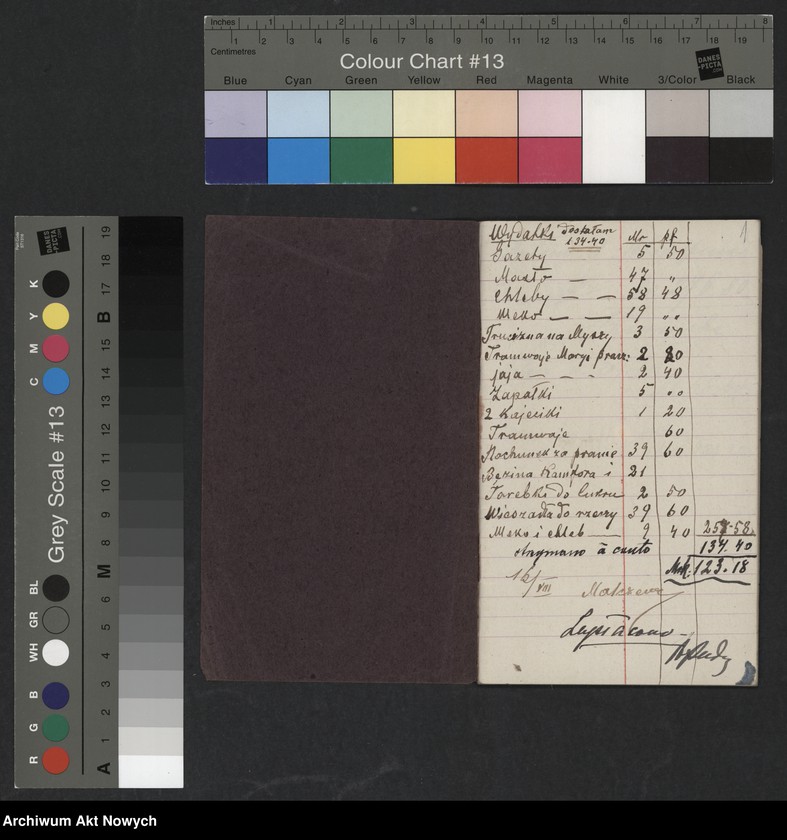 Inches 1 2 3 4 5 6 7 8
Centimetres 1 2 3 4 5 6 7 8 9 10 11 12 13 14 15 16 17 18 19
Colour Chart #13
DANES
-PICTA
.COM
Blue Cyan Green Yellow Red Magenta White 3/Color Black
DANES
-PICTA
.COM
Grey Scale #13
R G B WH GR BL C M Y K
A 1 2 3 4 5 6 M 8 9 10 11 12 13 14 15 B 17 18 19
1
Wydatki Dostałam Mr pf
134.40
Gazety 5 50
Masło — 47 "
Chleby — — 58 48
Mleko — — 19 "
Trucizna na Myszy 3 50
Tramwaje Maryi pracz: 2 80
jaja — - - 2 40
Zapałki 5 "
2 Kajeciki 1 20
Tramwaje 60
Rachunek za pranie 39 60
Bezina Kamfora i 21
Torebki do cukru 2 50
Wieszadła do rzeczy 39 60
Mleko i chleb 9 40 257-58.
otrzymano à conto 134.40
Mk. 123.18
16/VIII
Archiwum Akt Nowych